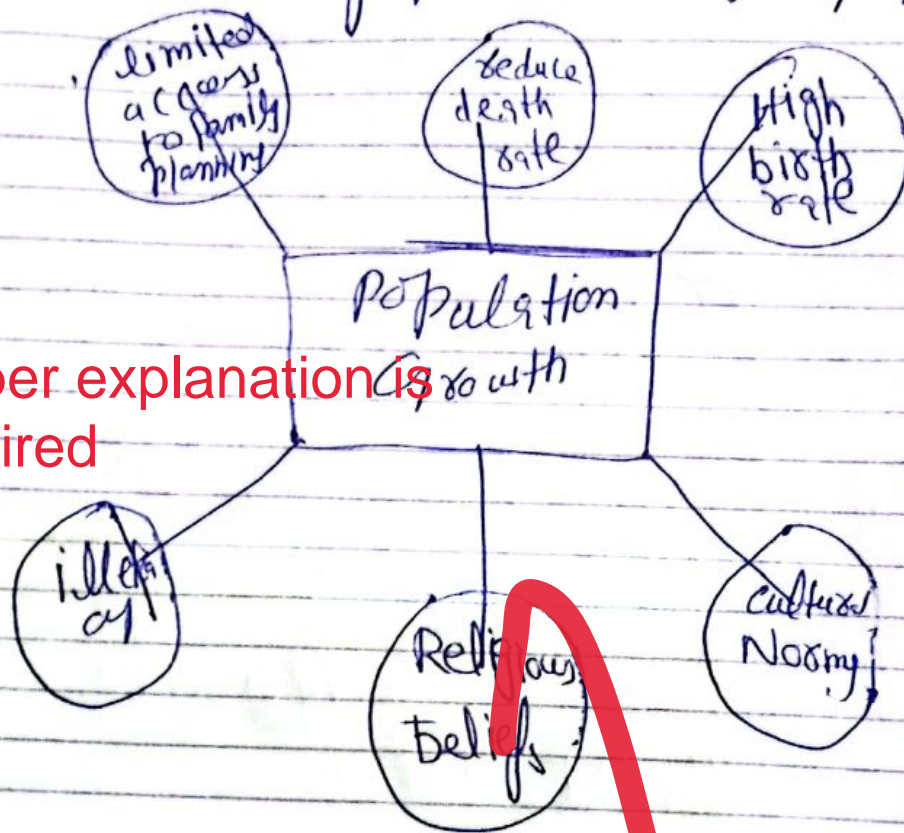 limited
access
to family
planning
reduce
death
rate
High
birth
rate
Population
Growth
per explanation is
ired
Religious
beliefs
cultural
Norms